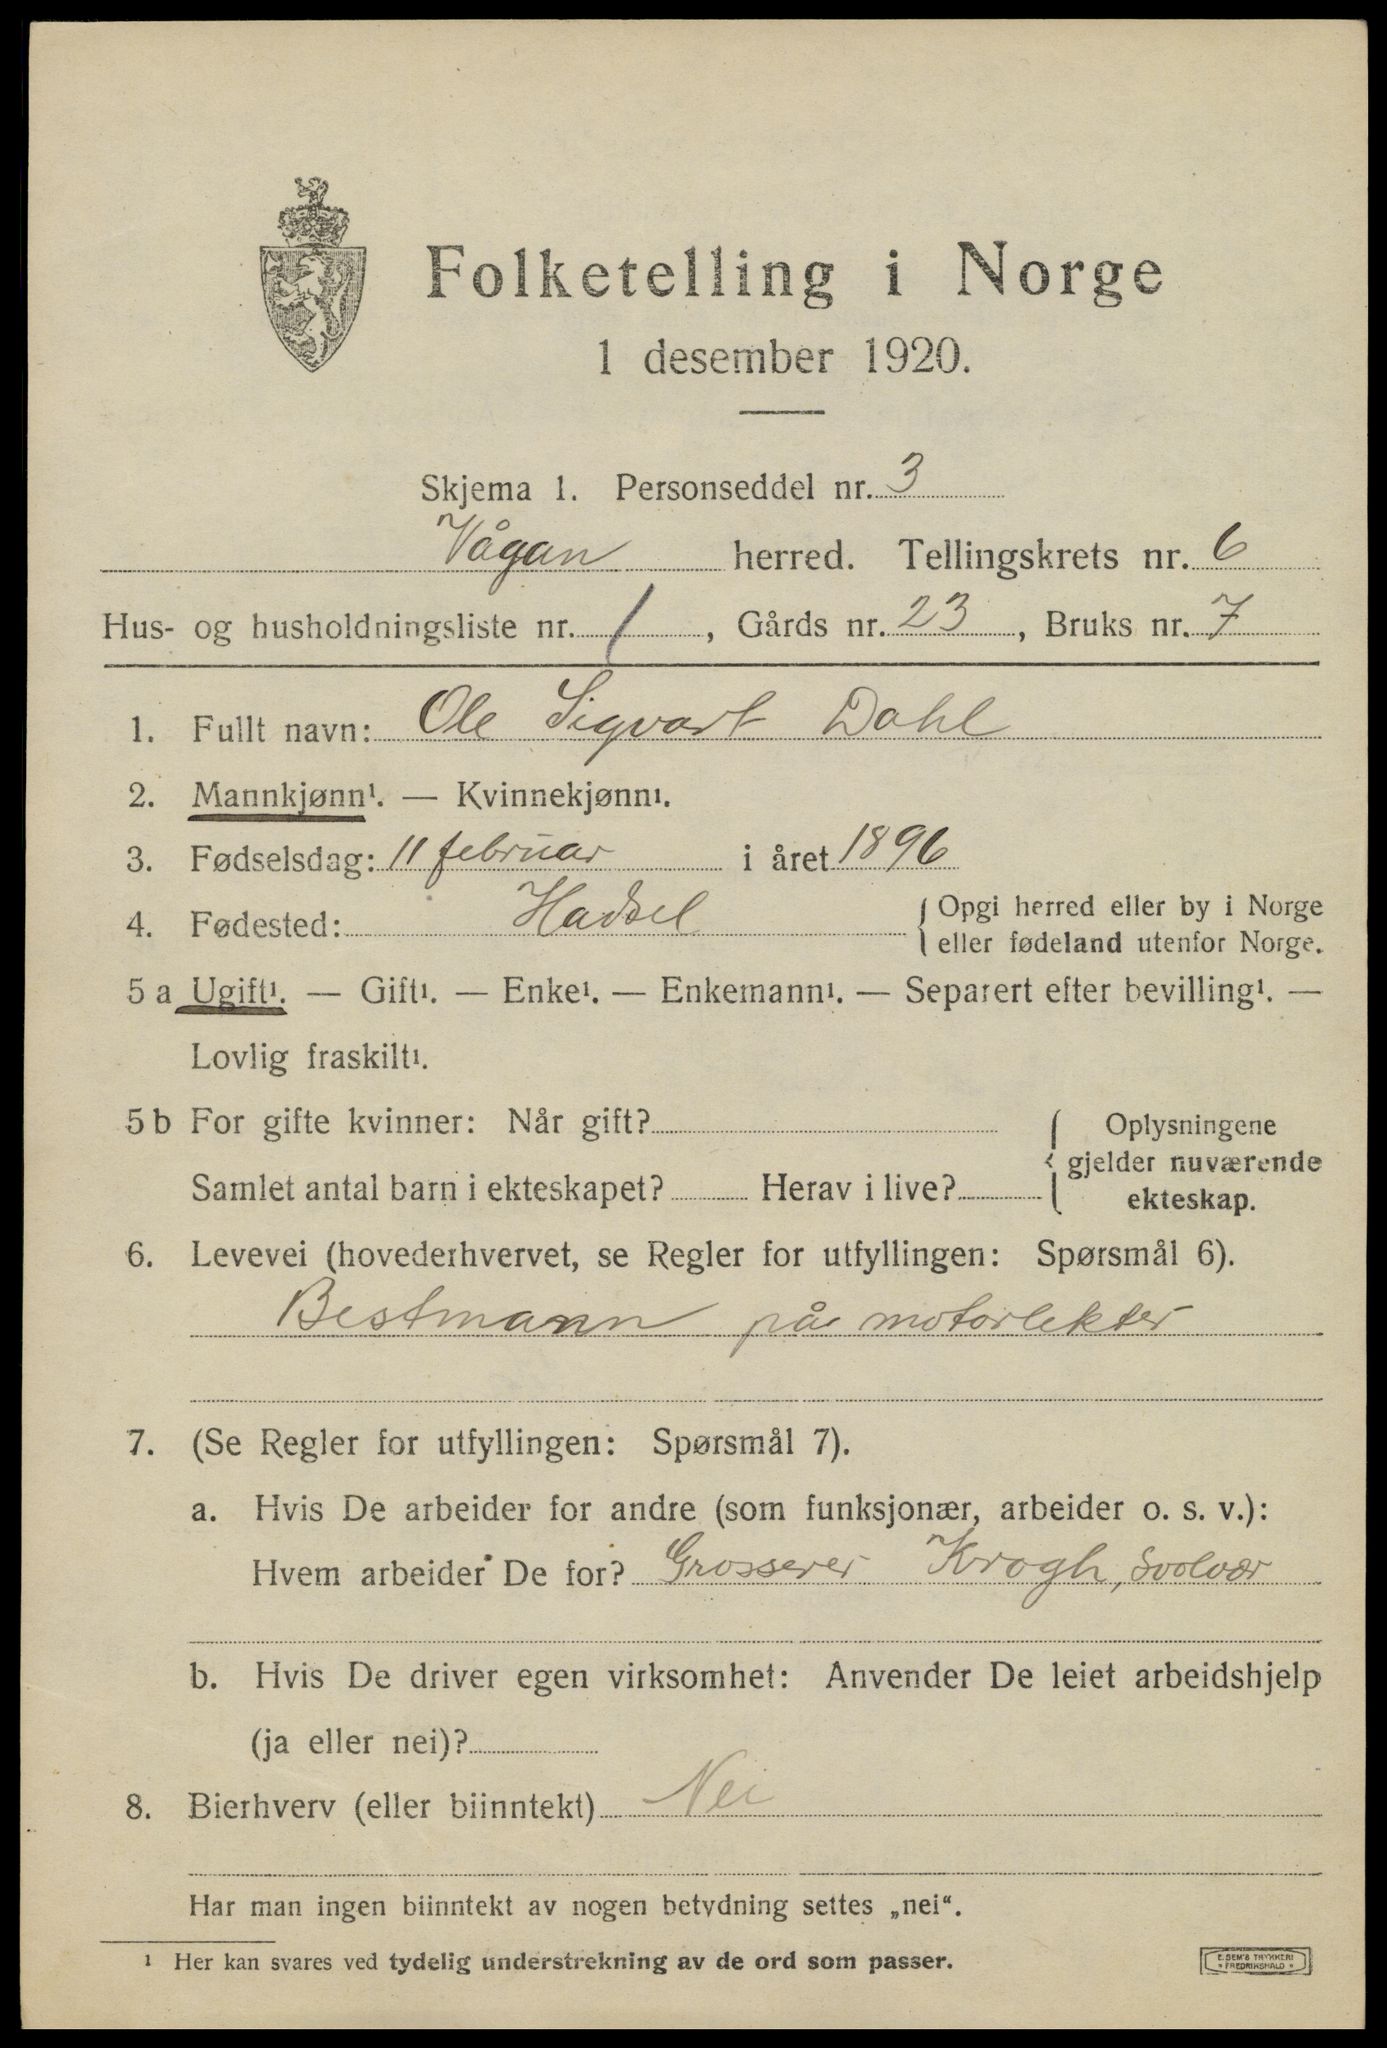 Folketelling i Norge
1 desember 1920.
Skjema 1. Personseddel nr. 3
Vågan herred. Tellingskrets nr. 6
Hus- og husholdningsliste nr. 1, Gårds nr. 23, Bruks nr. 7
1. Fullt navn: Ole Sigvart Dahl
2. Mannkjønn¹. — Kvinnekjønn¹.
3. Fødselsdag: 11 februar i året 1896
4. Fødested: Hadsel { Opgi herred eller by i Norge
eller fødeland utenfor Norge.
5 a Ugift¹. — Gift¹. — Enke¹. — Enkemann¹. — Separert efter bevilling¹. —
Lovlig fraskilt¹.
5 b For gifte kvinner: Når gift? { Oplysningene
gjelder nuværende
Samlet antal barn i ekteskapet? Herav i live? ekteskap.
6. Levevei (hovederhvervet, se Regler for utfyllingen: Spørsmål 6).
Bestmann på motorlekter
7. (Se Regler for utfyllingen: Spørsmål 7).
a. Hvis De arbeider for andre (som funksjonær, arbeider o. s. v.):
Hvem arbeider De for? Grosserer Krogh, Svolvær
b. Hvis De driver egen virksomhet: Anvender De leiet arbeidshjelp
(ja eller nei)?
8. Bierhverv (eller biinntekt) Nei
Har man ingen biinntekt av nogen betydning settes „nei“.
¹ Her kan svares ved tydelig understrekning av de ord som passer.
E. SEM'S TRYKKERI
FREDRIKSHALD